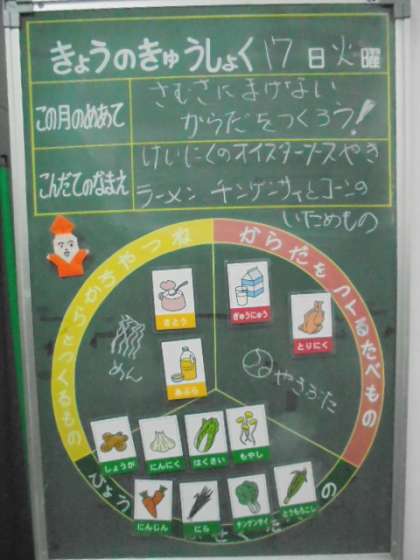 きょうのきゅうしょく 17日火曜
この月のめあて
さむさにまけない
からだをつくろう!
こんだてのなまえ
けいにくのオイスターソースやき
ラーメン チンゲンサイとコーンの
いためもの
からだをつくるたべもの
さとう
ぎゅうにゅう
とりにく
めん
あぶら
やきぶた
しょうが
にんにく
はくさい
もやし
にんじん
にら
チンゲンサイ
とうもろこし